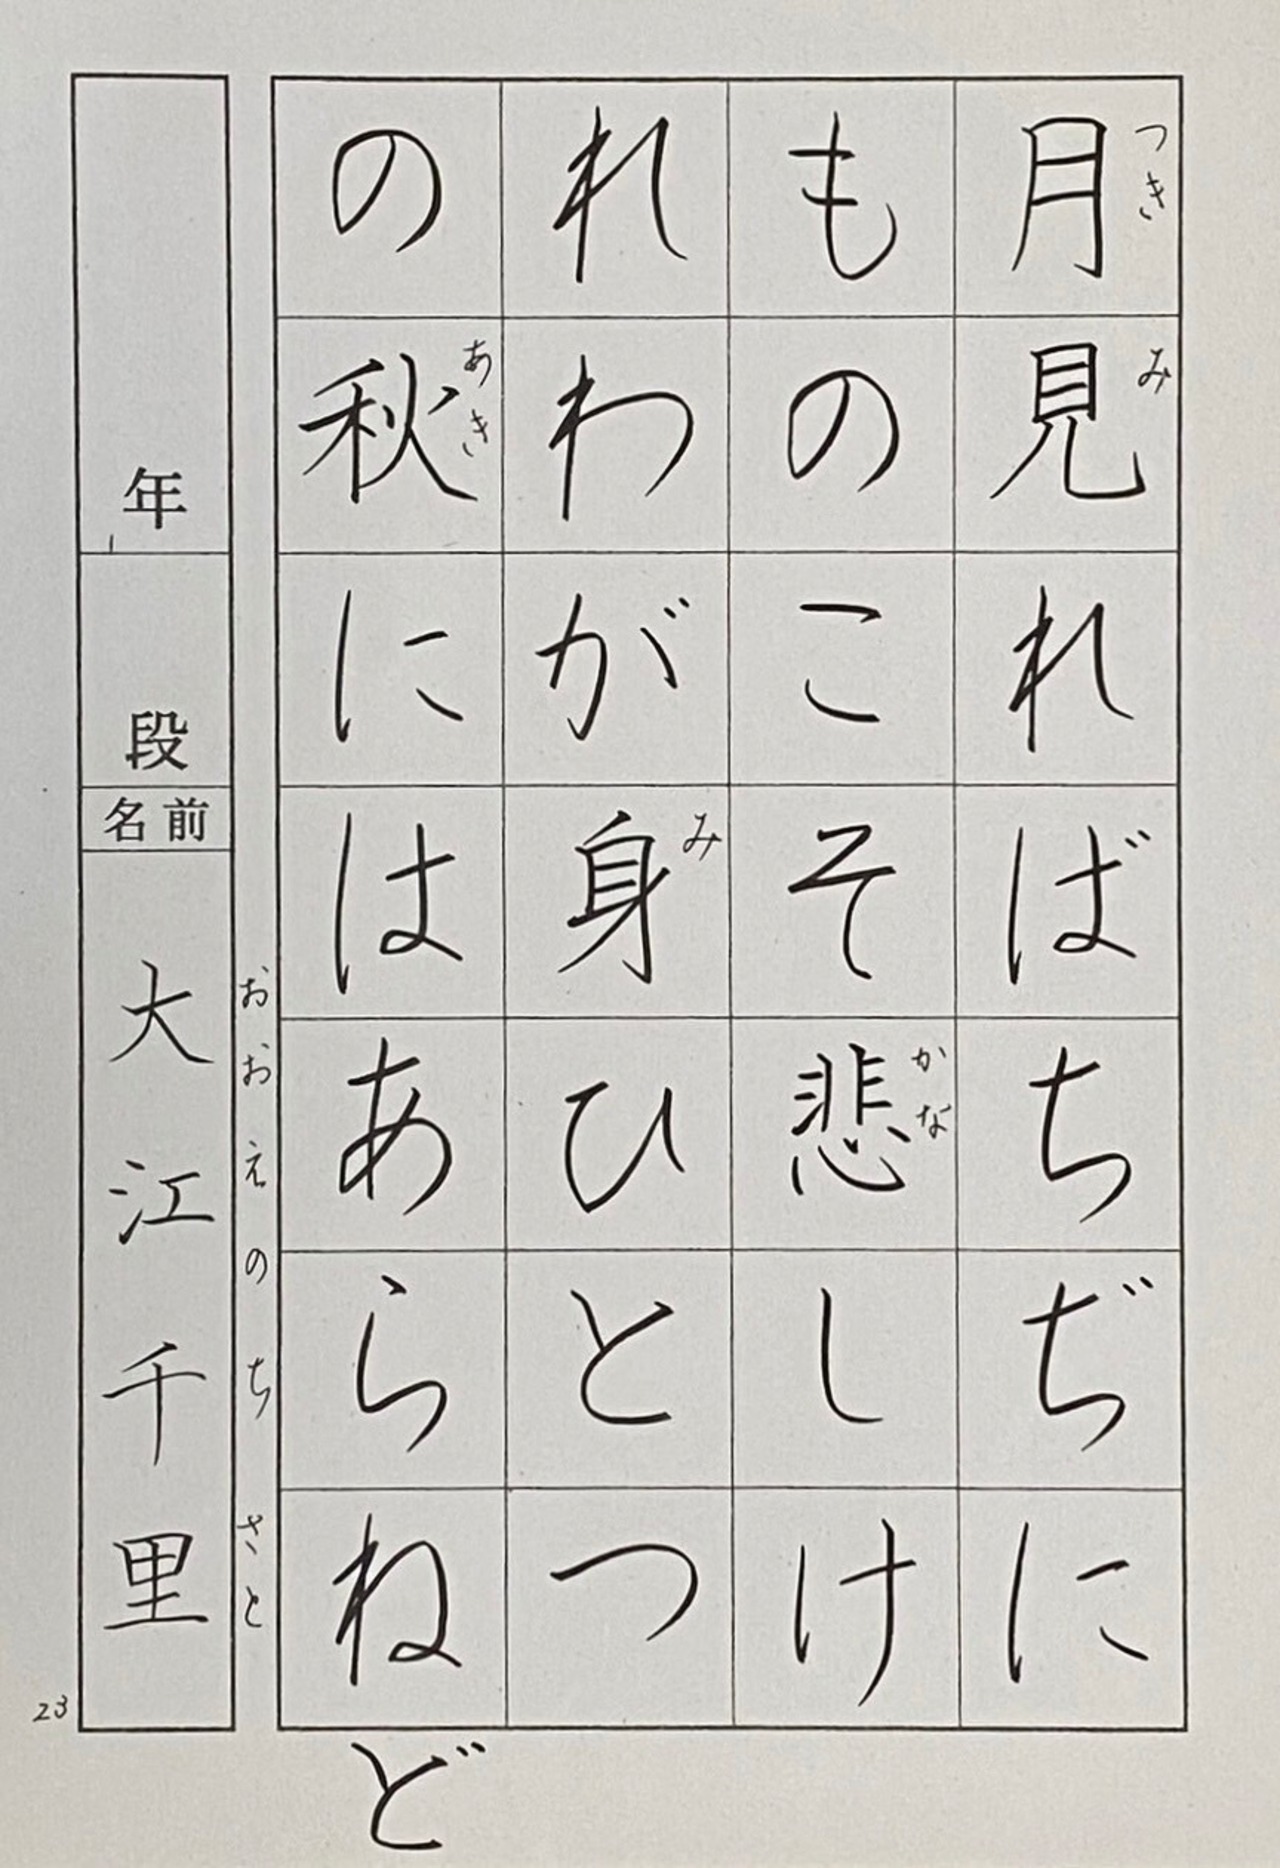 月見ればちぢに
ものこそ悲しけ
れわが身ひとつ
の秋にはあらねど
つき
み
かな
み
あき
年
段
名前
大江千里
おおえのちさと
23